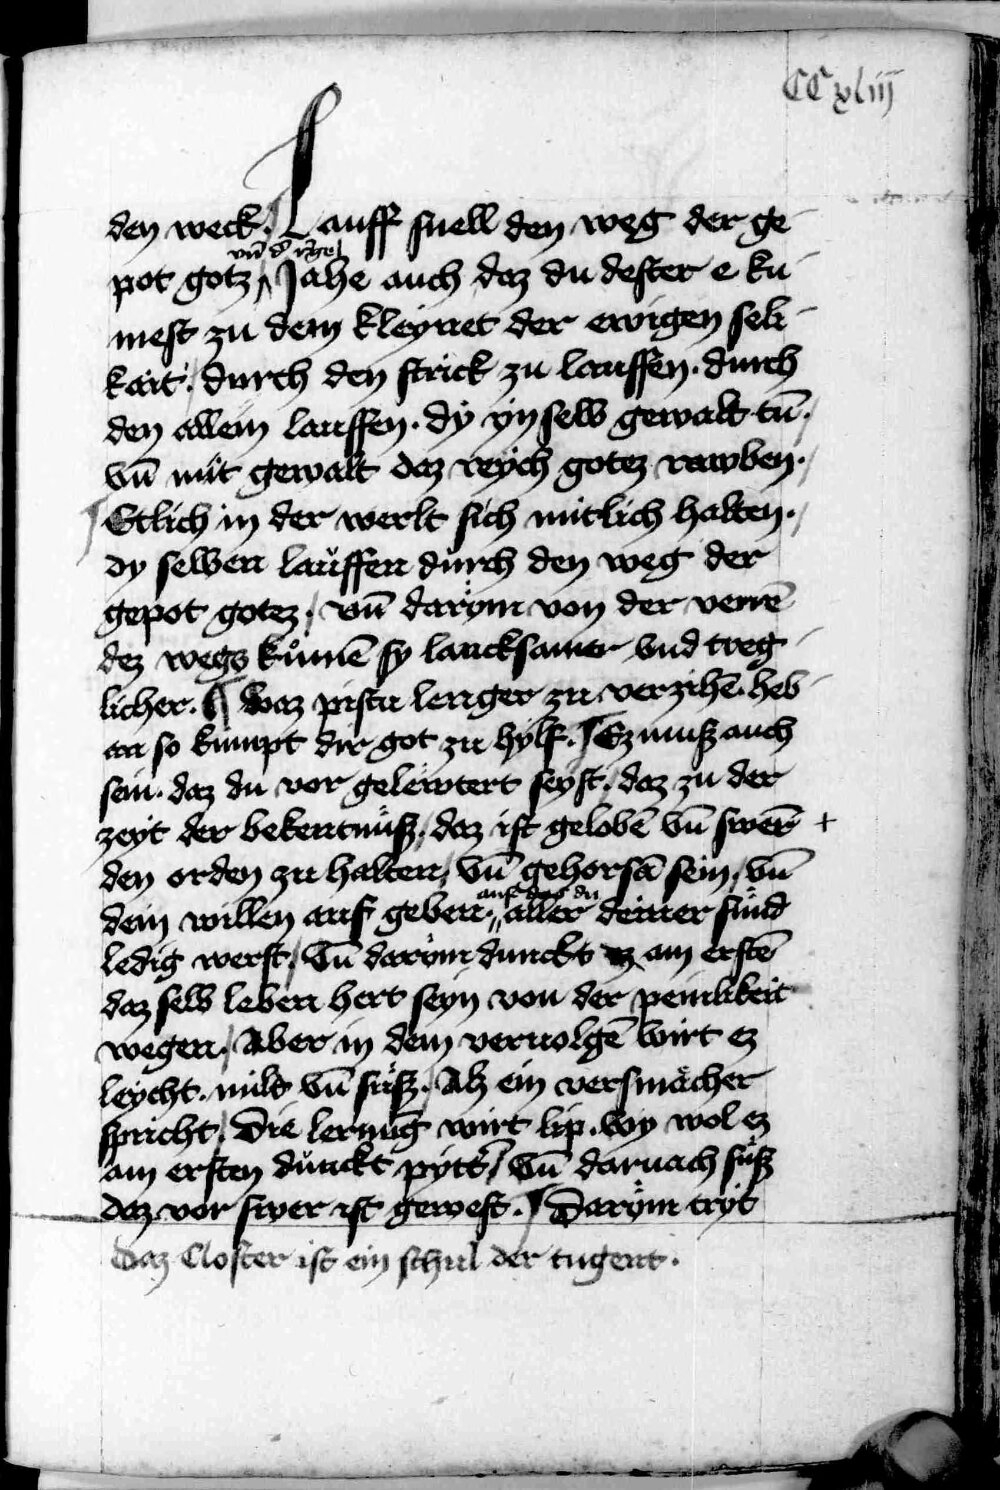 CCxliij
den weck. Lauff snell den weg der ge
vn̄ d' rege
pot gotz Jahe auch daz du dester e ku
mest zu dem kleynet der ewigen seli
kait. durch den strick zu lauffen. durch
den allein lauffen. dy yn selb gewalt tū.
vn̄ mit gewalt daz reych gotez rawben.
Etlich in der werlt sich mitlich halten.
dy selben lauffen durch den weg der
gepot gotez. vn̄ darüm von der verrē
dez wegs kümē sy lancksamer vnd treg
licher. Waz pistu lenger zu verzihē. heb
an so kumpt dir got zu hylf. Ez muß auch
sein. daz du vor gelewtert seyst. daz zu der
zeyt der bekentnüß. daz ist gelobē vn̄ swerē +
den orden zu halten, vn̄ gehorsā sein, vn̄
auf das du
dein willen auf geben. aller deiner sünd
ledig werst. Vn̄ darüm dunckt ez am erstē
daz selb leben hert seyn von der peinlikeit
wegen. Aber in dem vernolgē wirt ez
leycht. milt vn̄ süß. Als ein versmächer
spricht. Die lernūg wirt lip. wy wol ez
am ersten dünckt pytt', Vn̄ darnach süß
daz vor swer ist gewest. Darüm tryt
Daz Closter ist ein schul der tugent.